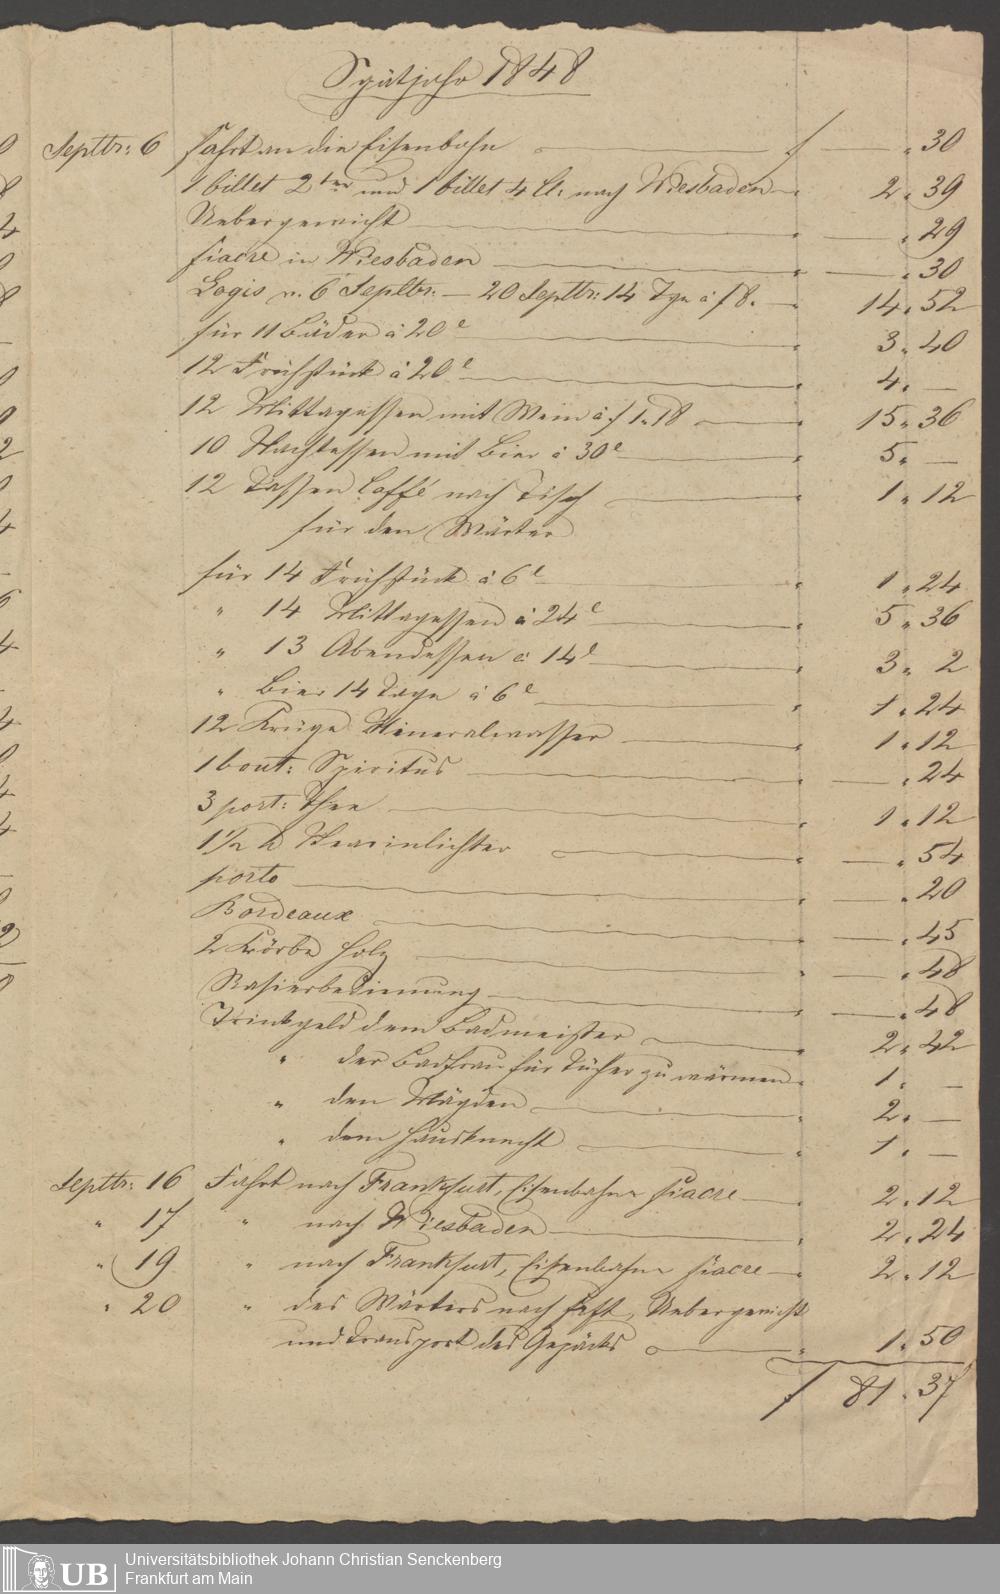 Spätjahr 1848
Septbr: 6 Fahrt an die Eisenbahn f — „ 30
1 billet 2ter und 1 billet 4 Cl: nach Wiesbaden „ 2 „ 39
Uebergewicht „ — „ 29
Fiacre in Wiesbaden „ — „ 30
Logis v. 6 Septbr: — 20 Septbr: 14 Tge à f 8. „ 14 „ 52
für 11 Bäder à 20 „ 3 „ 40
12 Frühstück à 20 „ 4 „ —
12 Mittagessen mit Wein à f 1 „ 18 „ 15 „ 36
10 Nachtessen mit Bier à 30 „ 5 „ —
12 Tassen Caffé nach Tisch „ 1 „ 12
für den Wärter
für 14 Frühstück à 6 „ 1 „ 24
„ 14 Mittagessen à 24 „ 5 „ 36
„ 13 Abendessen à 14 „ 3 „ 2
„ Bier 14 Tage à 6 „ 1 „ 24
12 Krüge Mineralwasser „ 1 „ 12
1 bout: Spiritus „ — „ 24
3 port: Thee „ 1 „ 12
1½ Stearinlichter „ — „ 54
porto „ — „ 20
Bordeaux „ — „ 45
2 Körbe Holz „ — „ 48
Rasierbedienung „ — „ 48
Trinkgeld dem Badmeister „ 2 „ 42
„ der Badfrau für Tücher zu wärmen „ 1 „ —
„ den Mägden „ 2 „ —
„ dem Hausknecht „ 1 „ —
Septbr: 16 Fahrt nach Frankfurt, Eisenbahn Fiacre „ 2 „ 12
„ 17 „ nach Wiesbaden „ 2 „ 24
„ 19 „ nach Frankfurt, Eisenbahn Fiacre „ 2 „ 12
„ 20 „ des Wärters nach Frft, Uebergewicht
und Transport des Gepäcks „ 1 „ 50
f 81 „ 37
UB
Universitätsbibliothek Johann Christian Senckenberg
Frankfurt am Main